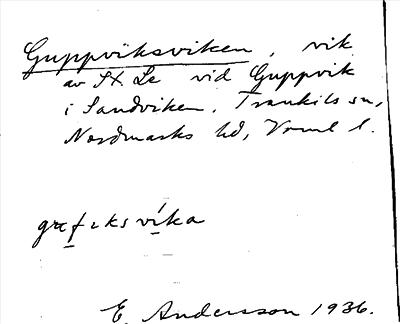 Guppviksviken, vik
av St. Le vid Guppvik
i Sandviken, Trankils sn,
Nordmarks hd, Vrml l.
E. Andersson 1936.